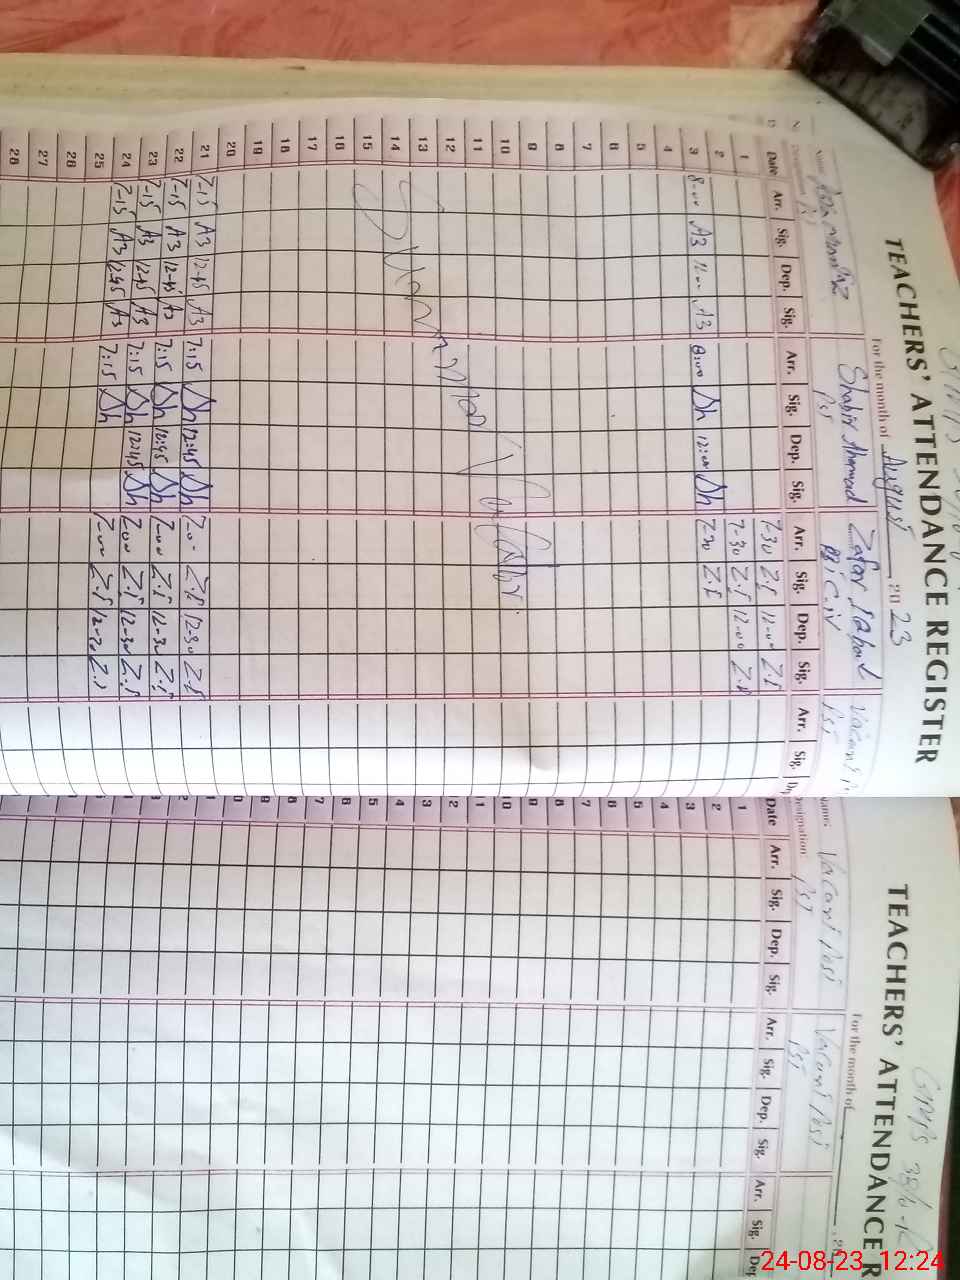 TEACHERS' ATTENDANCE REGISTER
For the month of August 2023
Shabir Ahamad Zafar Iqbal Vacant
PST C-iV PST
Date Arr. Sig. Dep. Sig. Arr. Sig. Dep. Sig. Arr. Sig. Dep. Sig. Arr. Sig.
1 7-30 Z.I 12-00 Z.I
2 7-30 Z.I 12-00 Z.I
3 8-00 A3 12-00 A3 8:00 Sh 12:00 Sh 7-30 Z.I
4
5
6
7
8
9
10
11
12
13
14
15
16
17
18
19
20
21 7-15 A3 12-45 A3 7:15 Sh 12:45 Sh 7-00 Z.I 12-30 Z.I
22 7-15 A3 12-45 A3 7:15 Sh 12:45 Sh 7-00 Z.I 12-30 Z.I
23 7-15 A3 12-45 A3 7:15 Sh 12:45 Sh 7-00 Z.I 12-30 Z.I
24 7-15 A3 12-45 A3 7:15 Sh 7-00 Z.I 12-30 Z.I
25
26
27
28
Summer Vacation
TEACHERS' ATTENDANCE R
For the month of , 20
Name: Vacant Post Vacant Post
Designation: PST PST
Date Arr. Sig. Dep. Sig. Arr. Sig. Dep. Sig. Arr. Sig. Dep
1
2
3
4
5
6
7
8
9
10
11
12
3
4
5
6
7
8
9
0
1
2
24-08-23 12:24